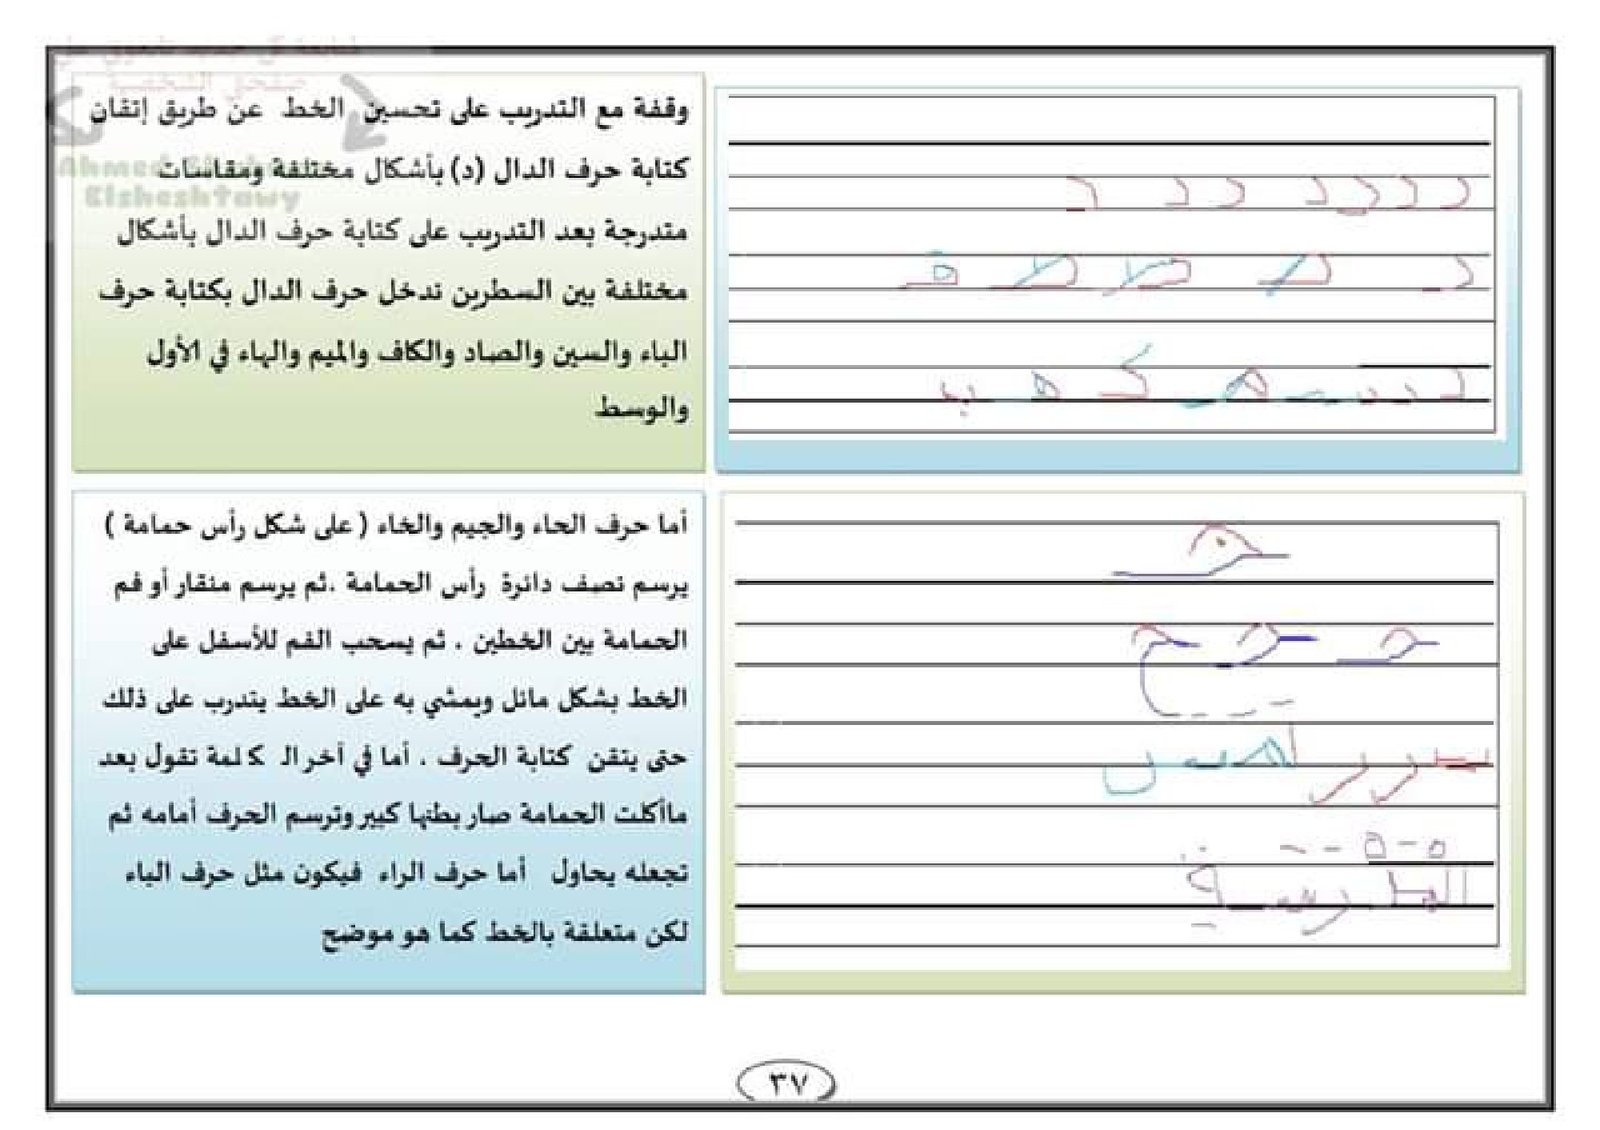 وقفة مع التدريب على تحسين الخط عن طريق إتقان
كتابة حرف الدال (د) بأشكال مختلفة ومقاسات
متدرجة بعد التدريب على كتابة حرف الدال بأشكال
مختلفة بين السطرين ندخل حرف الدال بكتابة حرف
الباء والسين والصاد والكاف والميم والهاء في الأول
والوسط
Ahmed
Elsheshtawy
د د د د د د د
أما حرف الحاء والجيم والخاء ( على شكل رأس حمامة )
يرسم نصف دائرة رأس الحمامة .ثم يرسم منقار أو فم
الحمامة بين الخطين . ثم يسحب الفم للأسفل على
الخط بشكل مائل ويمشي به على الخط يتدرب على ذلك
حتى يتقن كتابة الحرف . أما في آخر الـ كلمة نقول بعد
ماأكلت الحمامة صار بطنها كبير وترسم الحرف أمامه ثم
تجعله يحاول أما حرف الراء فيكون مثل حرف الباء
لكن متعلقة بالخط كما هو موضح
٣٧